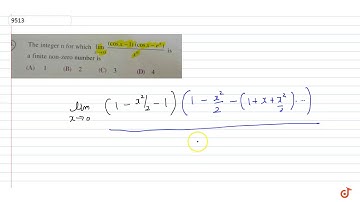 9513
The integer n for which lim x→0 (cos x – 1) (cos x – e^x) / x^n is
a finite non-zero number is
(A) 1 (B) 2 (C) 3 (D) 4
lim x→0 (1 - x²/2 - 1) (1 - x²/2 - (1 + x + x²/2) ...)